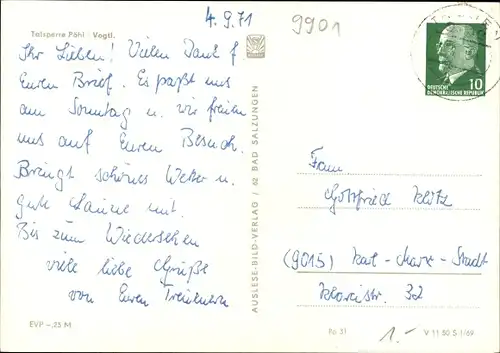 4.9.71
9901
Talsperre Pöhl · Vogtl.
Ihr Lieben! Vielen Dank f
Euren Brief. Es paßt uns
am Sonntag u. wir freuen
uns auf Euren Besuch.
Bringt schönes Wetter u.
gute Laune mit.
Bis zum Wiedersehen
viele liebe Grüße
von Euren
EVP -,25 M
AUSLESE-BILD-VERLAG / 62 BAD SALZUNGEN
10
DEUTSCHE
DEMOKRATISCHE REPUBLIK
Fam
Gottfried Klötz
(9015) Karl-Marx-Stadt
Klarastr. 32
Po 31
1.-
V 11 50 S 1/69